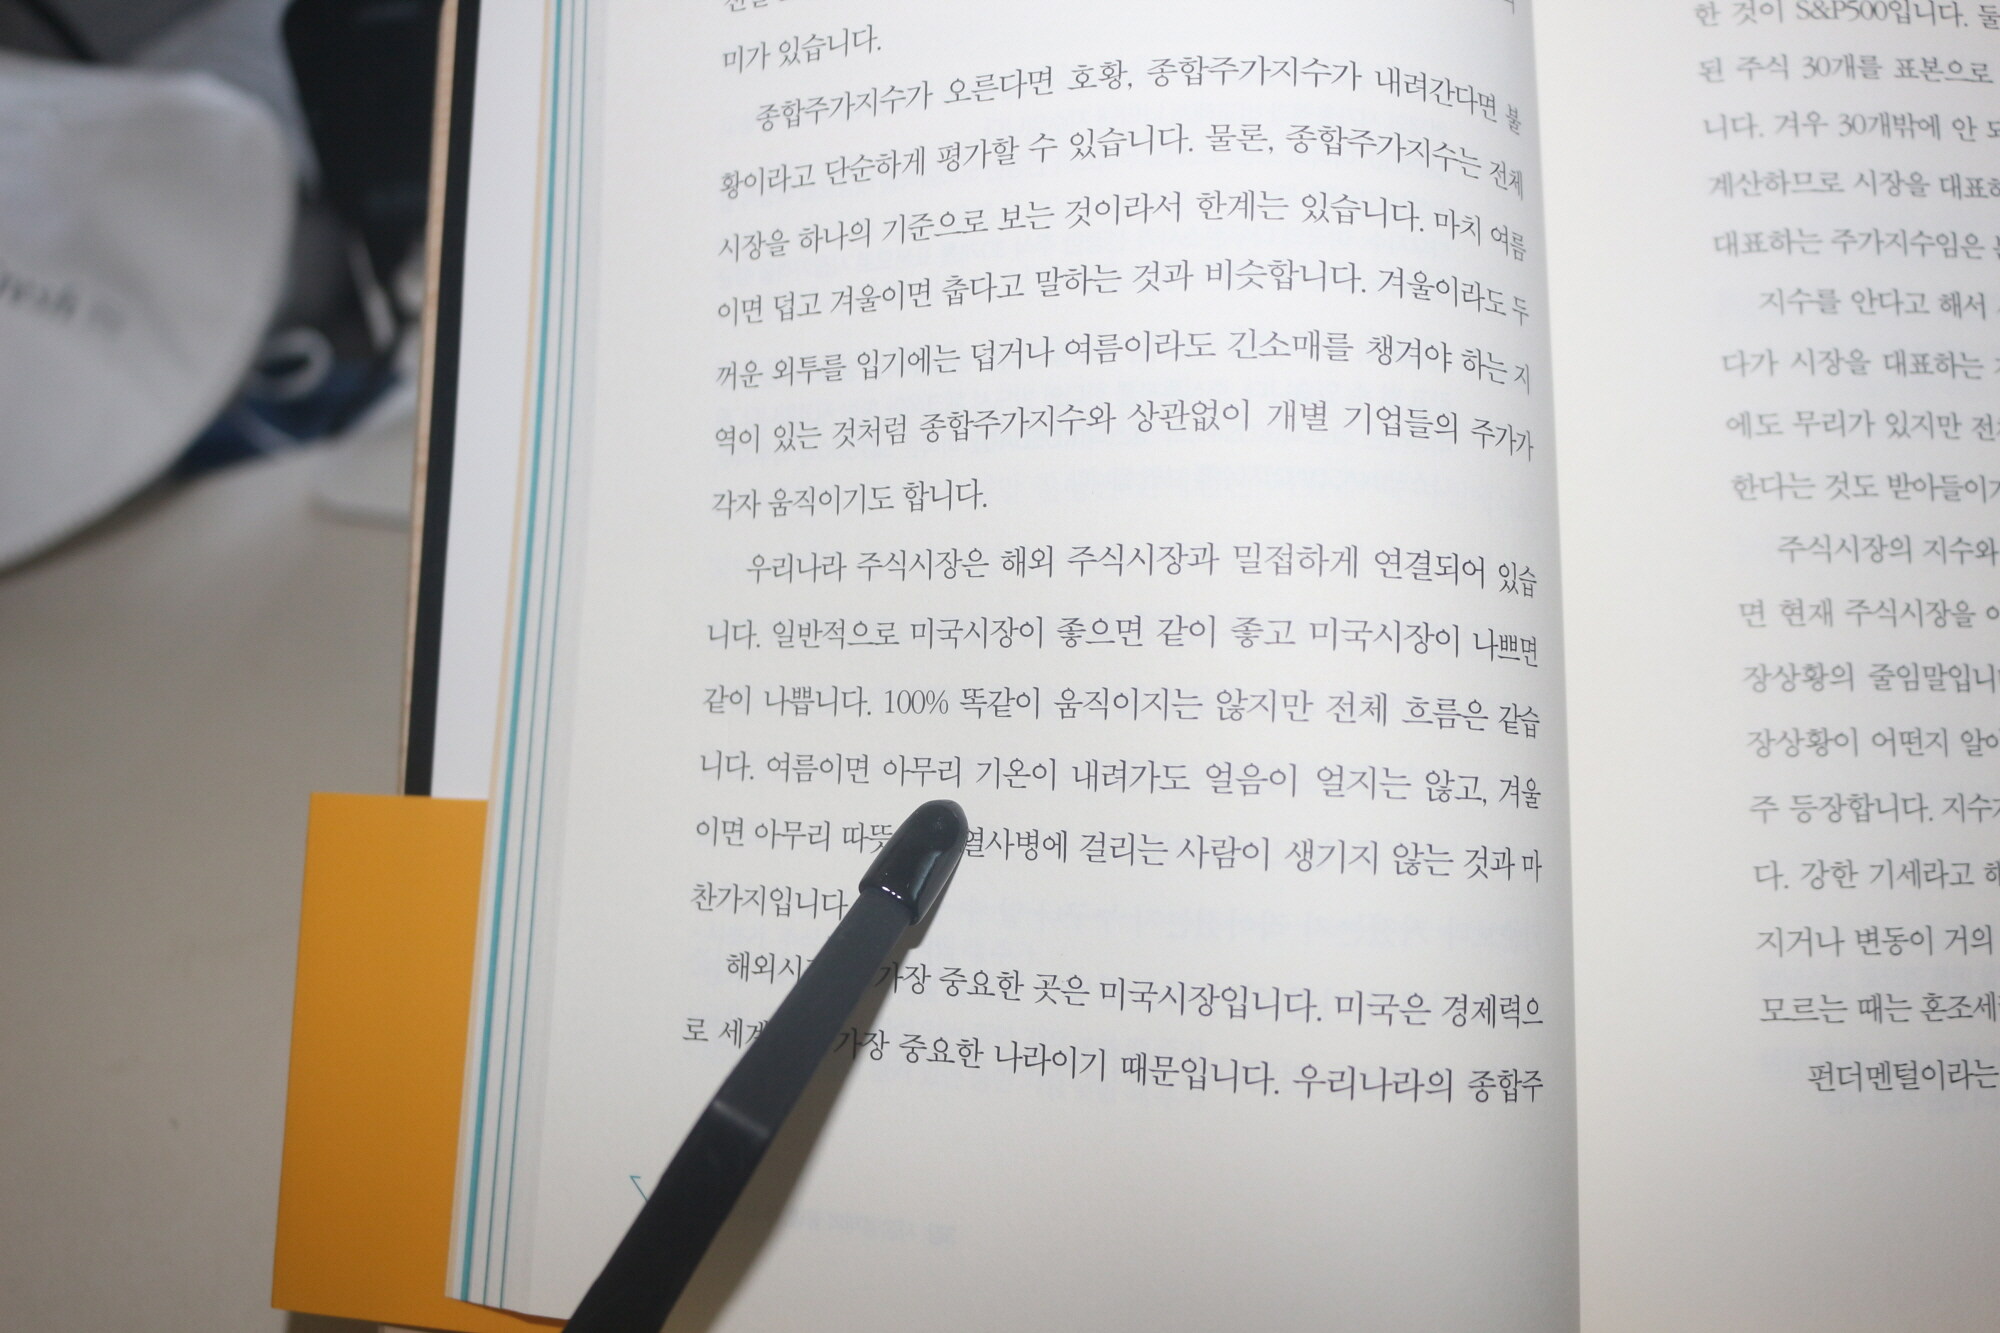 미가 있습니다.
종합주가지수가 오른다면 호황, 종합주가지수가 내려간다면 불
황이라고 단순하게 평가할 수 있습니다. 물론, 종합주가지수는 전체
시장을 하나의 기준으로 보는 것이라서 한계는 있습니다. 마치 여름
이면 덥고 겨울이면 춥다고 말하는 것과 비슷합니다. 겨울이라도 두
꺼운 외투를 입기에는 덥거나 여름이라도 긴소매를 챙겨야 하는 지
역이 있는 것처럼 종합주가지수와 상관없이 개별 기업들의 주가가
각자 움직이기도 합니다.
우리나라 주식시장은 해외 주식시장과 밀접하게 연결되어 있습
니다. 일반적으로 미국시장이 좋으면 같이 좋고 미국시장이 나쁘면
같이 나쁩니다. 100% 똑같이 움직이지는 않지만 전체 흐름은 같습
니다. 여름이면 아무리 기온이 내려가도 얼음이 얼지는 않고, 겨울
이면 아무리 따뜻 열사병에 걸리는 사람이 생기지 않는 것과 마
찬가지입니다
해외시 가장 중요한 곳은 미국시장입니다. 미국은 경제력으
로 세계 가장 중요한 나라이기 때문입니다. 우리나라의 종합주
한 것이 S&P500입니다. 둘
된 주식 30개를 표본으로
니다. 겨우 30개밖에 안
계산하므로 시장을 대표하
대표하는 주가지수임은
지수를 안다고 해서
다가 시장을 대표하는
에도 무리가 있지만 전
한다는 것도 받아들이
주식시장의 지수와
면 현재 주식시장을
장상황의 줄임말입니
장상황이 어떤지 알아
주 등장합니다. 지수
다. 강한 기세라고 해
지거나 변동이 거의
모르는 때는 혼조세
펀더멘털이라는